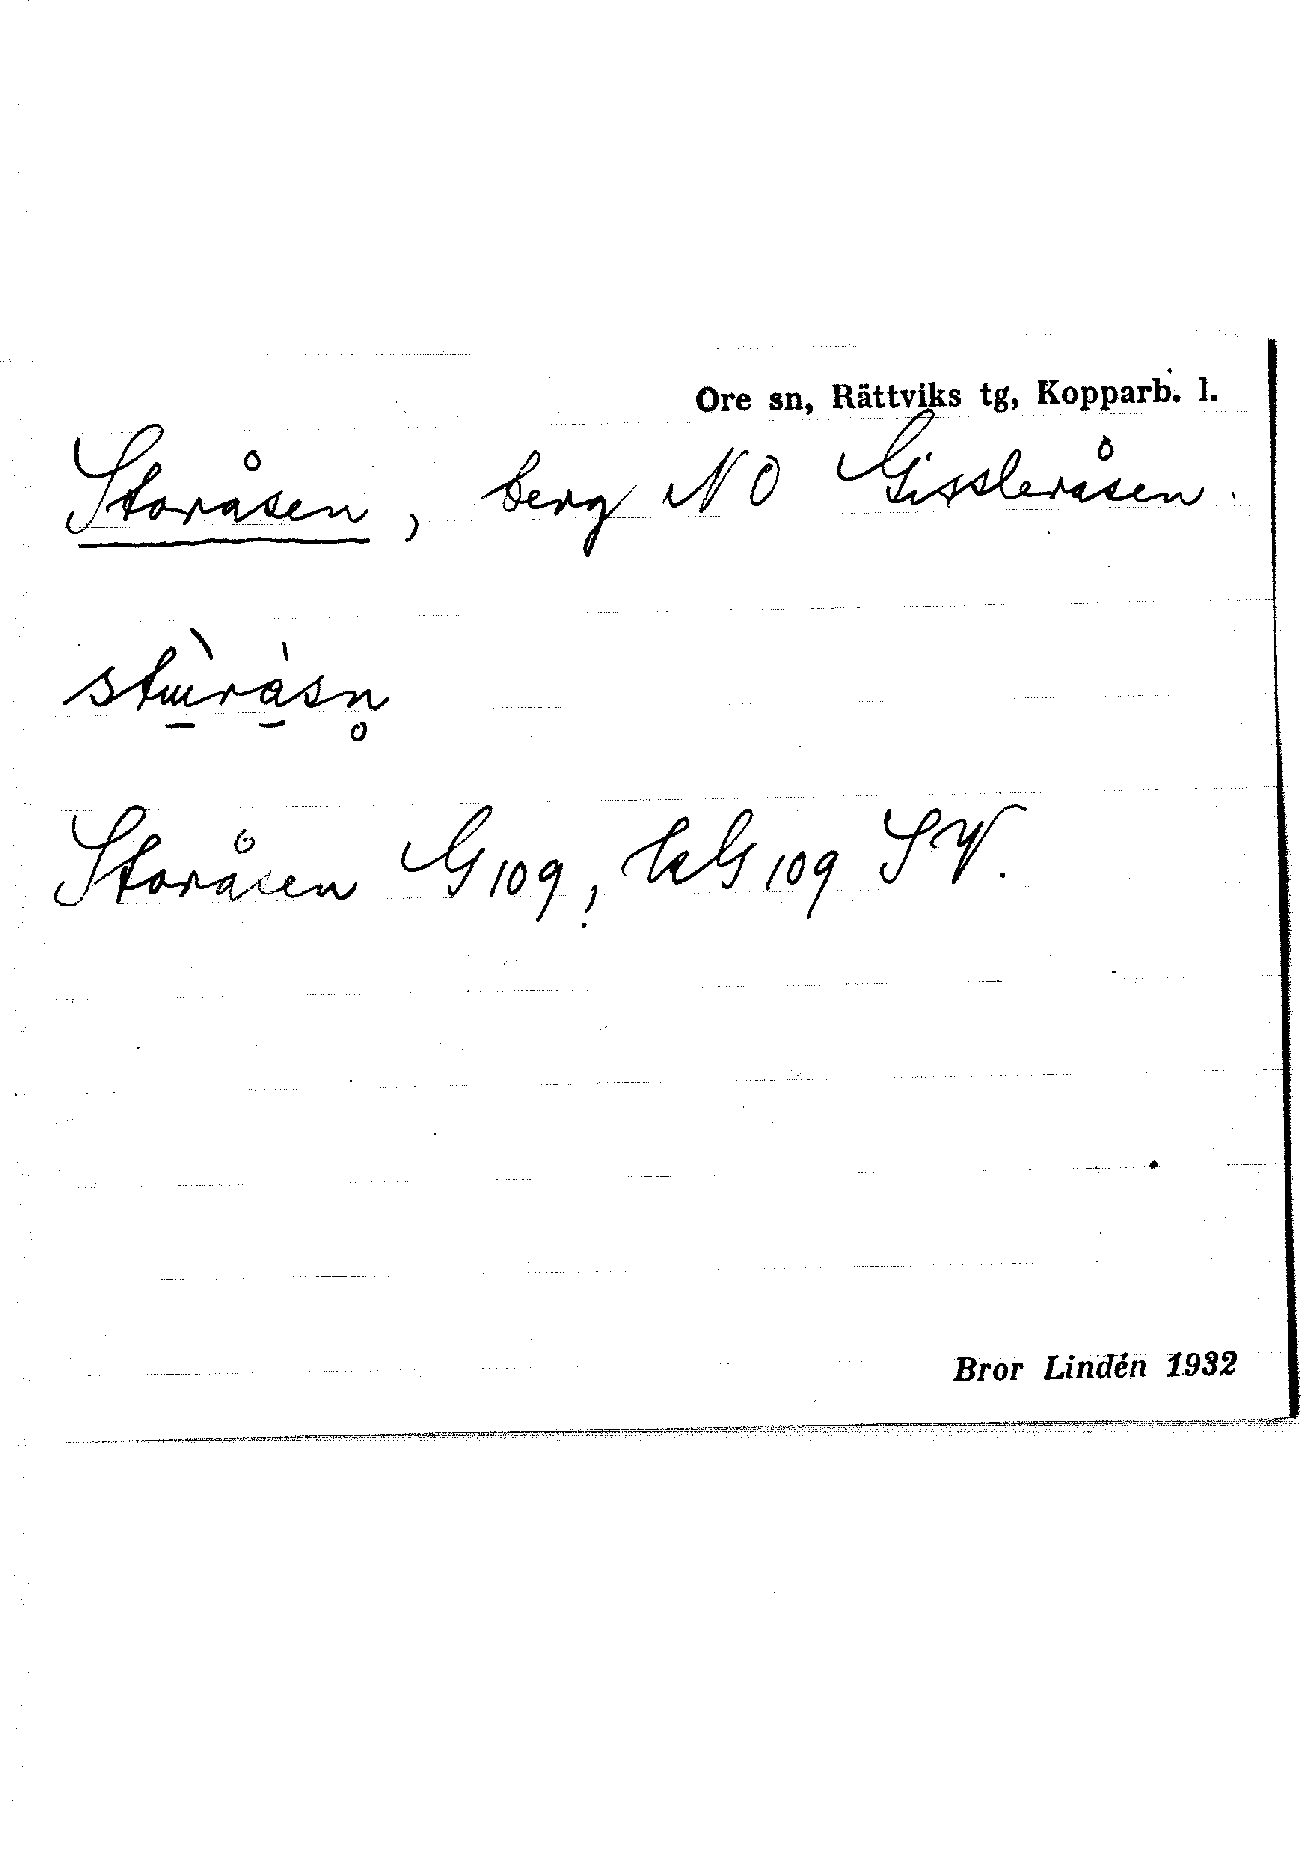 Ore sn, Rättviks tg, Kopparb. l.
Storåsen, berg NO Gissleråsen.
Storåsen G109, kG109 SV.
Bror Lindén 1932